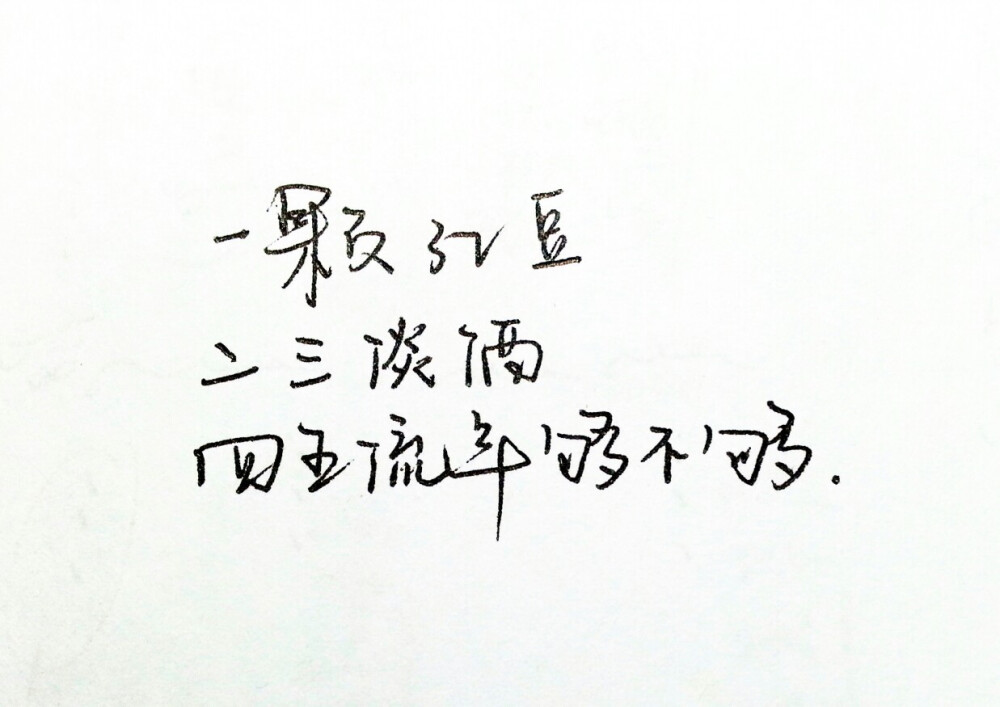 一颗红豆
二三淡酒
四五流年够不够.